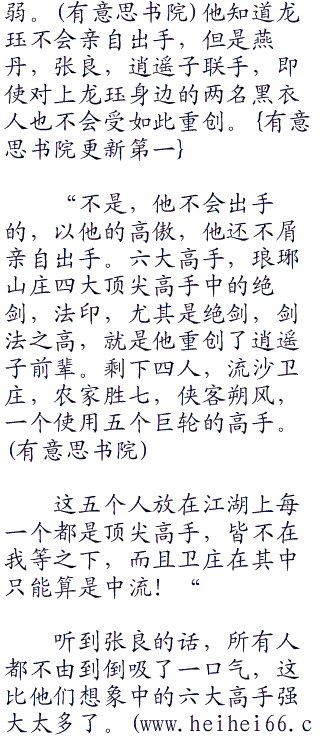 弱。(有意思书院)他知道龙
珏不会亲自出手，但是燕
丹，张良，逍遥子联手，即
使对上龙珏身边的两名黑衣
人也不会受如此重创。{有意
思书院更新第一}
“不是，他不会出手
的，以他的高傲，他还不屑
亲自出手。六大高手，琅琊
山庄四大顶尖高手中的绝
剑，法印，尤其是绝剑，剑
法之高，就是他重创了逍遥
子前辈。剩下四人，流沙卫
庄，农家胜七，侠客朔风，
一个使用五个巨轮的高手。
(有意思书院)
这五个人放在江湖上每
一个都是顶尖高手，皆不在
我等之下，而且卫庄在其中
只能算是中流！“
听到张良的话，所有人
都不由到倒吸了一口气，这
比他们想象中的六大高手强
大太多了。(www.heihei66.c